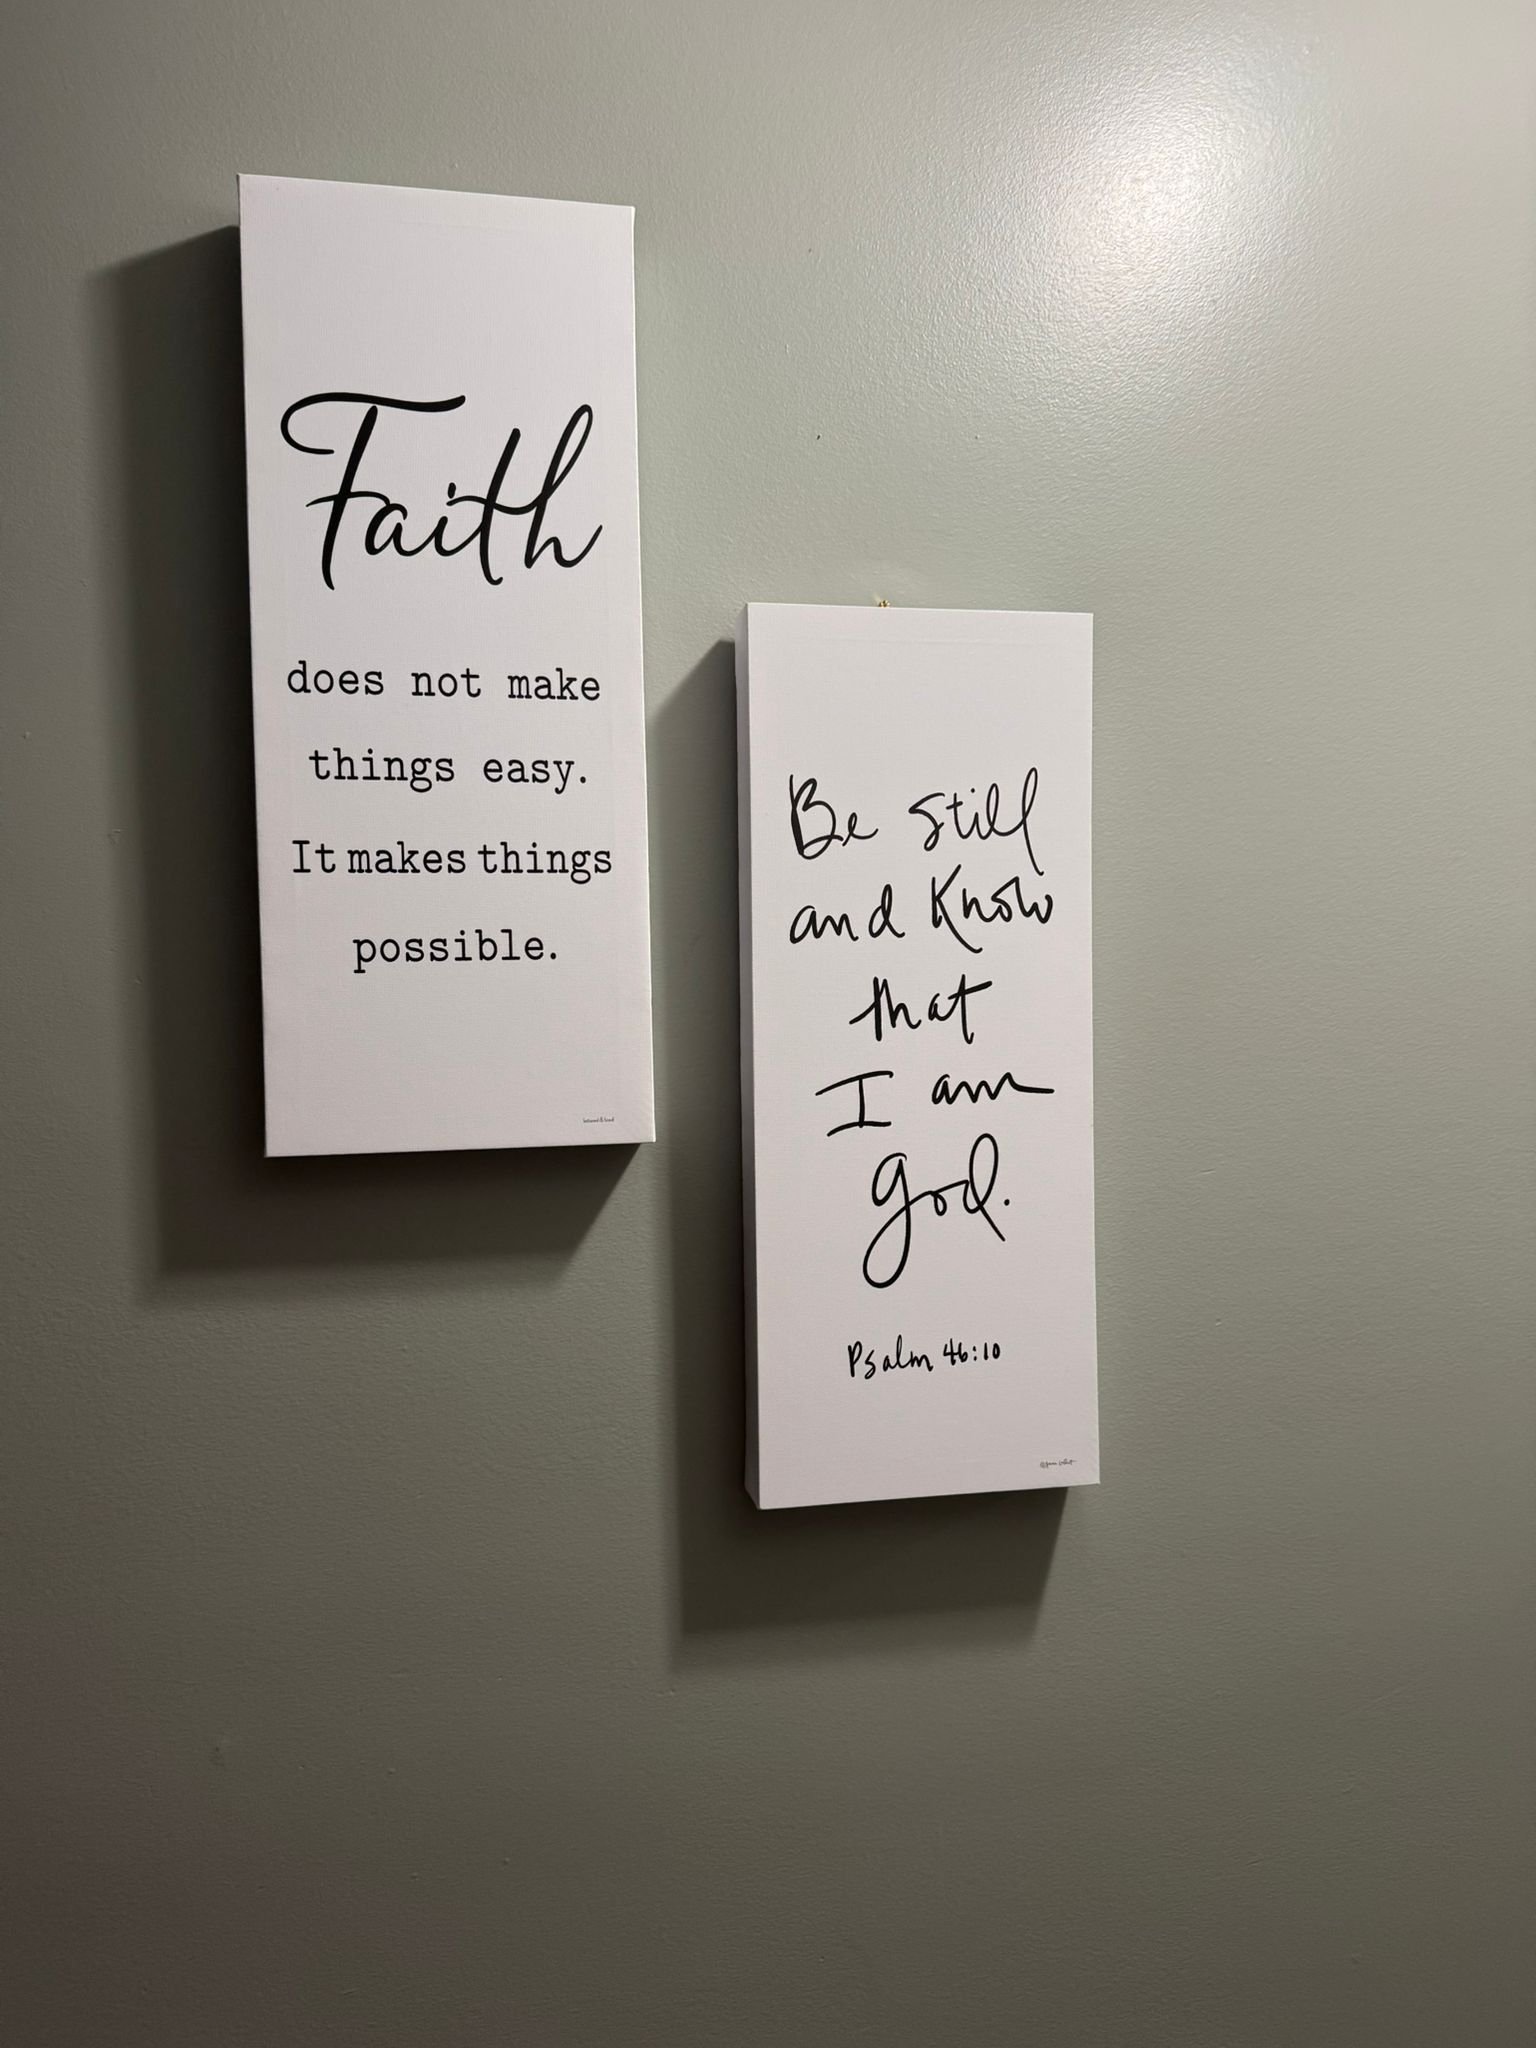 Faith
does not make
things easy.
It makes things
possible.
Be still
and Know
that
I am
God.
Psalm 46:10